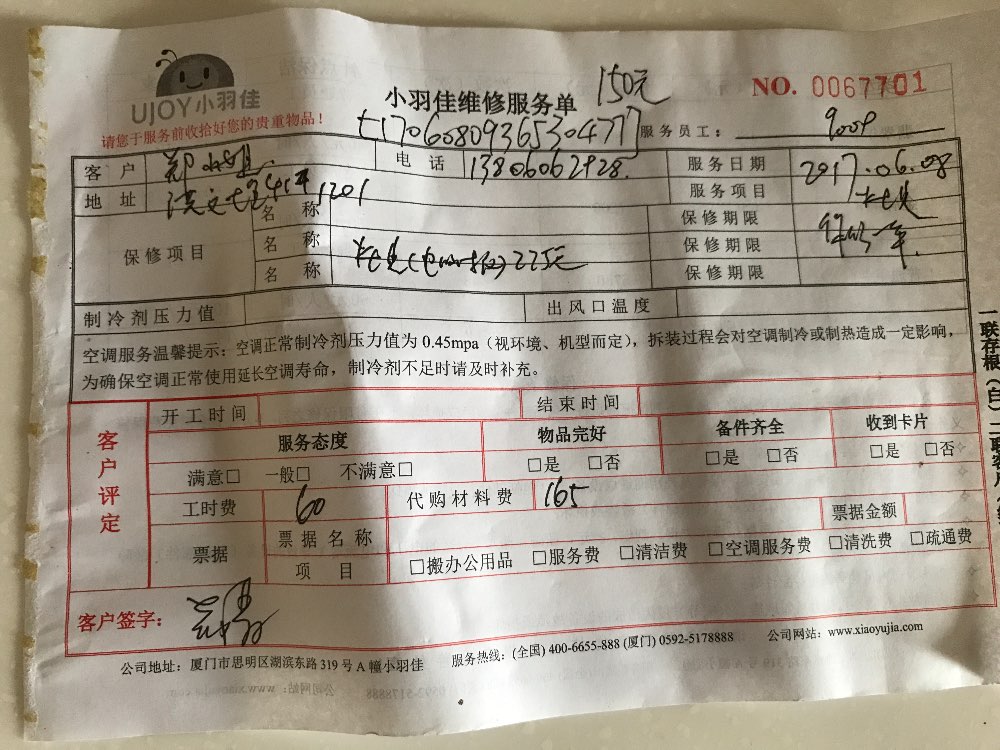 UJOY小羽佳
请您于服务前收拾好您的贵重物品！
小羽佳维修服务单 150元 NO. 0067701
服务员工：
客户 郑小姐 电话 13806062928 服务日期 2017.06.08
地址 1201 服务项目
保修项目 名称 保修期限
名称 225元 保修期限 一年
名称 保修期限
制冷剂压力值 出风口温度
空调服务温馨提示：空调正常制冷剂压力值为 0.45mpa（视环境、机型而定），拆装过程会对空调制冷或制热造成一定影响，
为确保空调正常使用延长空调寿命，制冷剂不足时请及时补充。
客户评定 开工时间 结束时间
服务态度 物品完好 备件齐全 收到卡片
满意□ 一般□ 不满意□ □是 □否 □是 □否 □是 □否
工时费 60 代购材料费 165 票据金额
票据 票据名称
项目 □搬办公用品 □服务费 □清洁费 □空调服务费 □清洗费 □疏通费
客户签字：
公司地址：厦门市思明区湖滨东路 319 号 A 幢小羽佳 服务热线：(全国) 400-6655-888 (厦门) 0592-5178888 公司网站：www.xiaoyujia.com
一联存根（白）二联客户